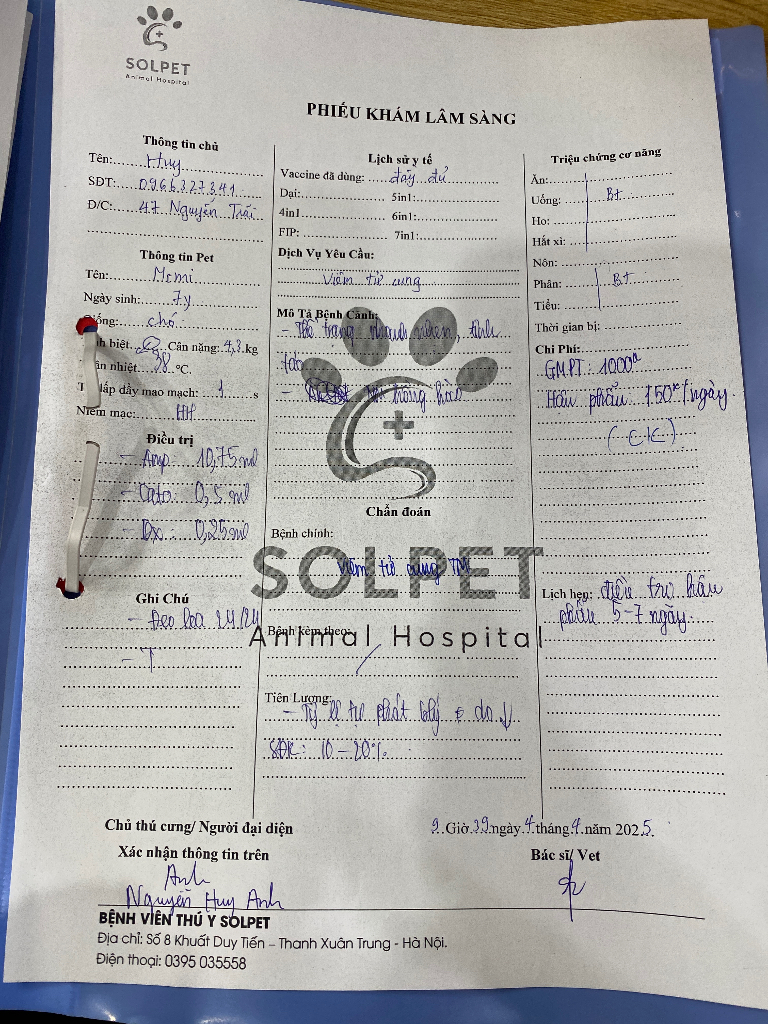 SOLPET
Animal Hospital
PHIẾU KHÁM LÂM SÀNG
Thông tin chủ
Tên: Huy
SĐT: 0966327341
Đ/C: 47 Nguyễn Trãi
Thông tin Pet
Tên: Mimi
Ngày sinh: 7y
Giống: chó
biệt Cân nặng: 4,3 kg
nhiệt 38 °C.
lấp đầy mao mạch: 1 s
Niêm mạc: HH
Điều trị
- Amp 10,75ml
- Cato: 0,5 ml
- Dx: 0,25ml
Ghi Chú
- Đeo loa 24/24
- T
Lịch sử y tế
Vaccine đã dùng: đầy đủ
Dại: 5in1:
4in1 6in1:
FIP: 7in1:
Dịch Vụ Yêu Cầu:
Viêm tử cung
Mô Tả Bệnh Cảnh:
- Thể trạng nhanh nhẹn, tỉnh
táo
- trong
Chẩn đoán
Bệnh chính:
Viêm tử cung
SOLPET
Animal Hospital
Bệnh kèm theo:
Tiên Lượng:
- Tỷ lệ tự phát do ↓
SĐK: 10 - 20%
Triệu chứng cơ năng
Ăn:
Uống: Bt
Ho:
Hắt xì:
Nôn:
Phân: Bt
Tiểu:
Thời gian bị:
Chi Phí:
GMPT: 1000k
Hậu phẫu 150k/ngày.
(CK)
Lịch hẹn: điều trị hậu
phẫu 5-7 ngày.
Chủ thú cưng/ Người đại diện
Xác nhận thông tin trên
Anh
Nguyễn Huy Anh
9 Giờ 39 ngày 4 tháng 4 năm 2025
Bác sĩ/ Vet
BỆNH VIỆN THÚ Y SOLPET
Địa chỉ: Số 8 Khuất Duy Tiến – Thanh Xuân Trung - Hà Nội.
Điện thoại: 0395 035558